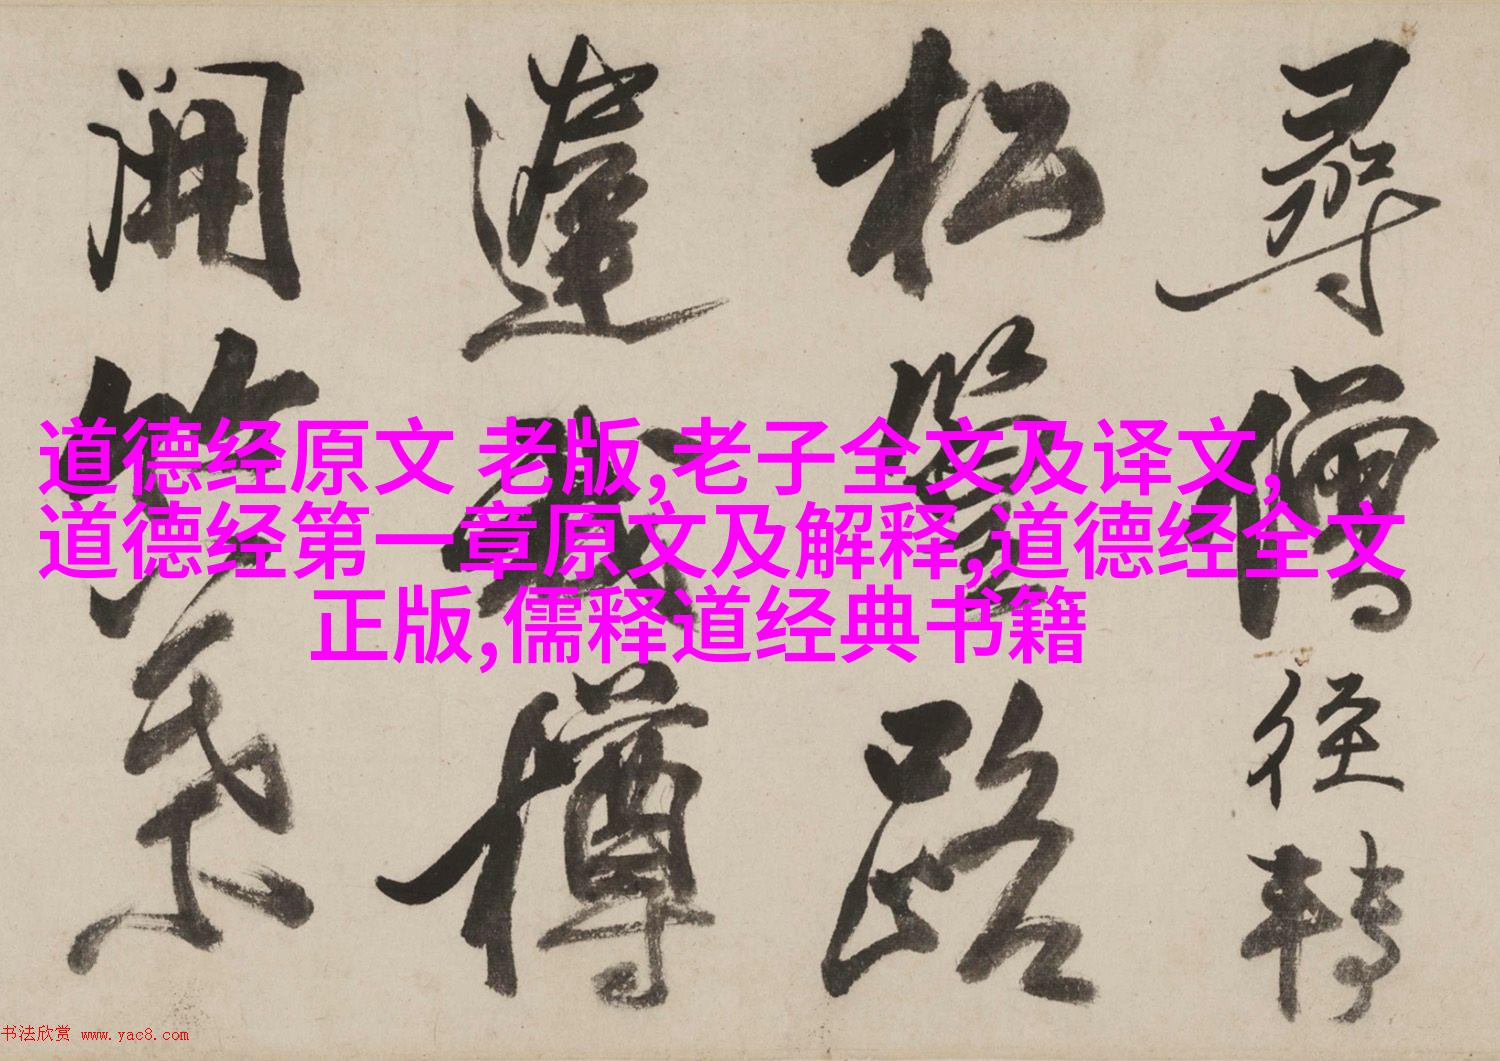 尋僧径轉
松路
蓬樽
開
道德经原文 老版,老子全文及译文,
道德经第一章原文及解释,道德经全文
正版,儒释道经典书籍
书法欣赏 www.yac8.com